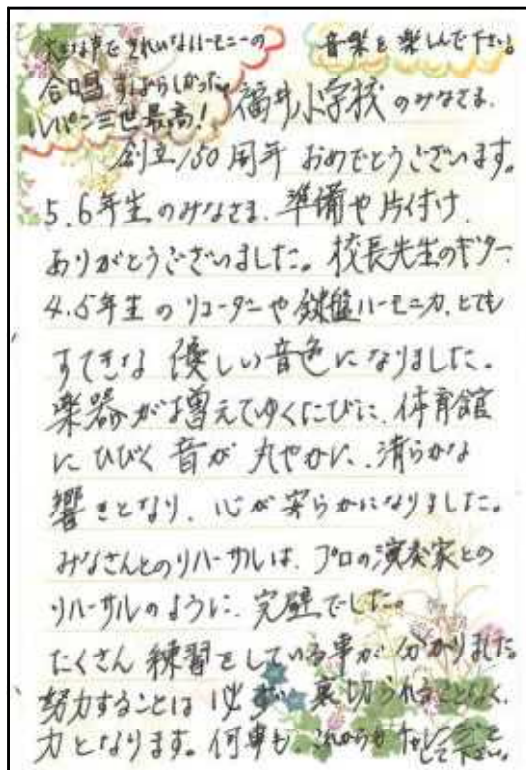 大きな声できれいなハーモニーの
合唱すばらしかった。
ルパン三世最高!
音楽を楽しんで下さい。
福井小学校のみなさま、
創立150周年おめでとうございます。
5.6年生のみなさま、準備や片付け、
ありがとうございました。校長先生のギター
4.5年生のリコーダーや鍵盤ハーモニカ、とても
すてきな優しい音色になりました。
楽器が増えてゆくたびに、体育館
にひびく音が丸やかに、清らかな
響きとなり、心が安らかになりました。
みなさんとのリハーサルは、プロの演奏家との
リハーサルのように、完璧でした。
たくさん練習をしている事が分かりました。
努力することは必ず、裏切られることなく、
力となります。何事も、これからもチャレンジを
して下さい。